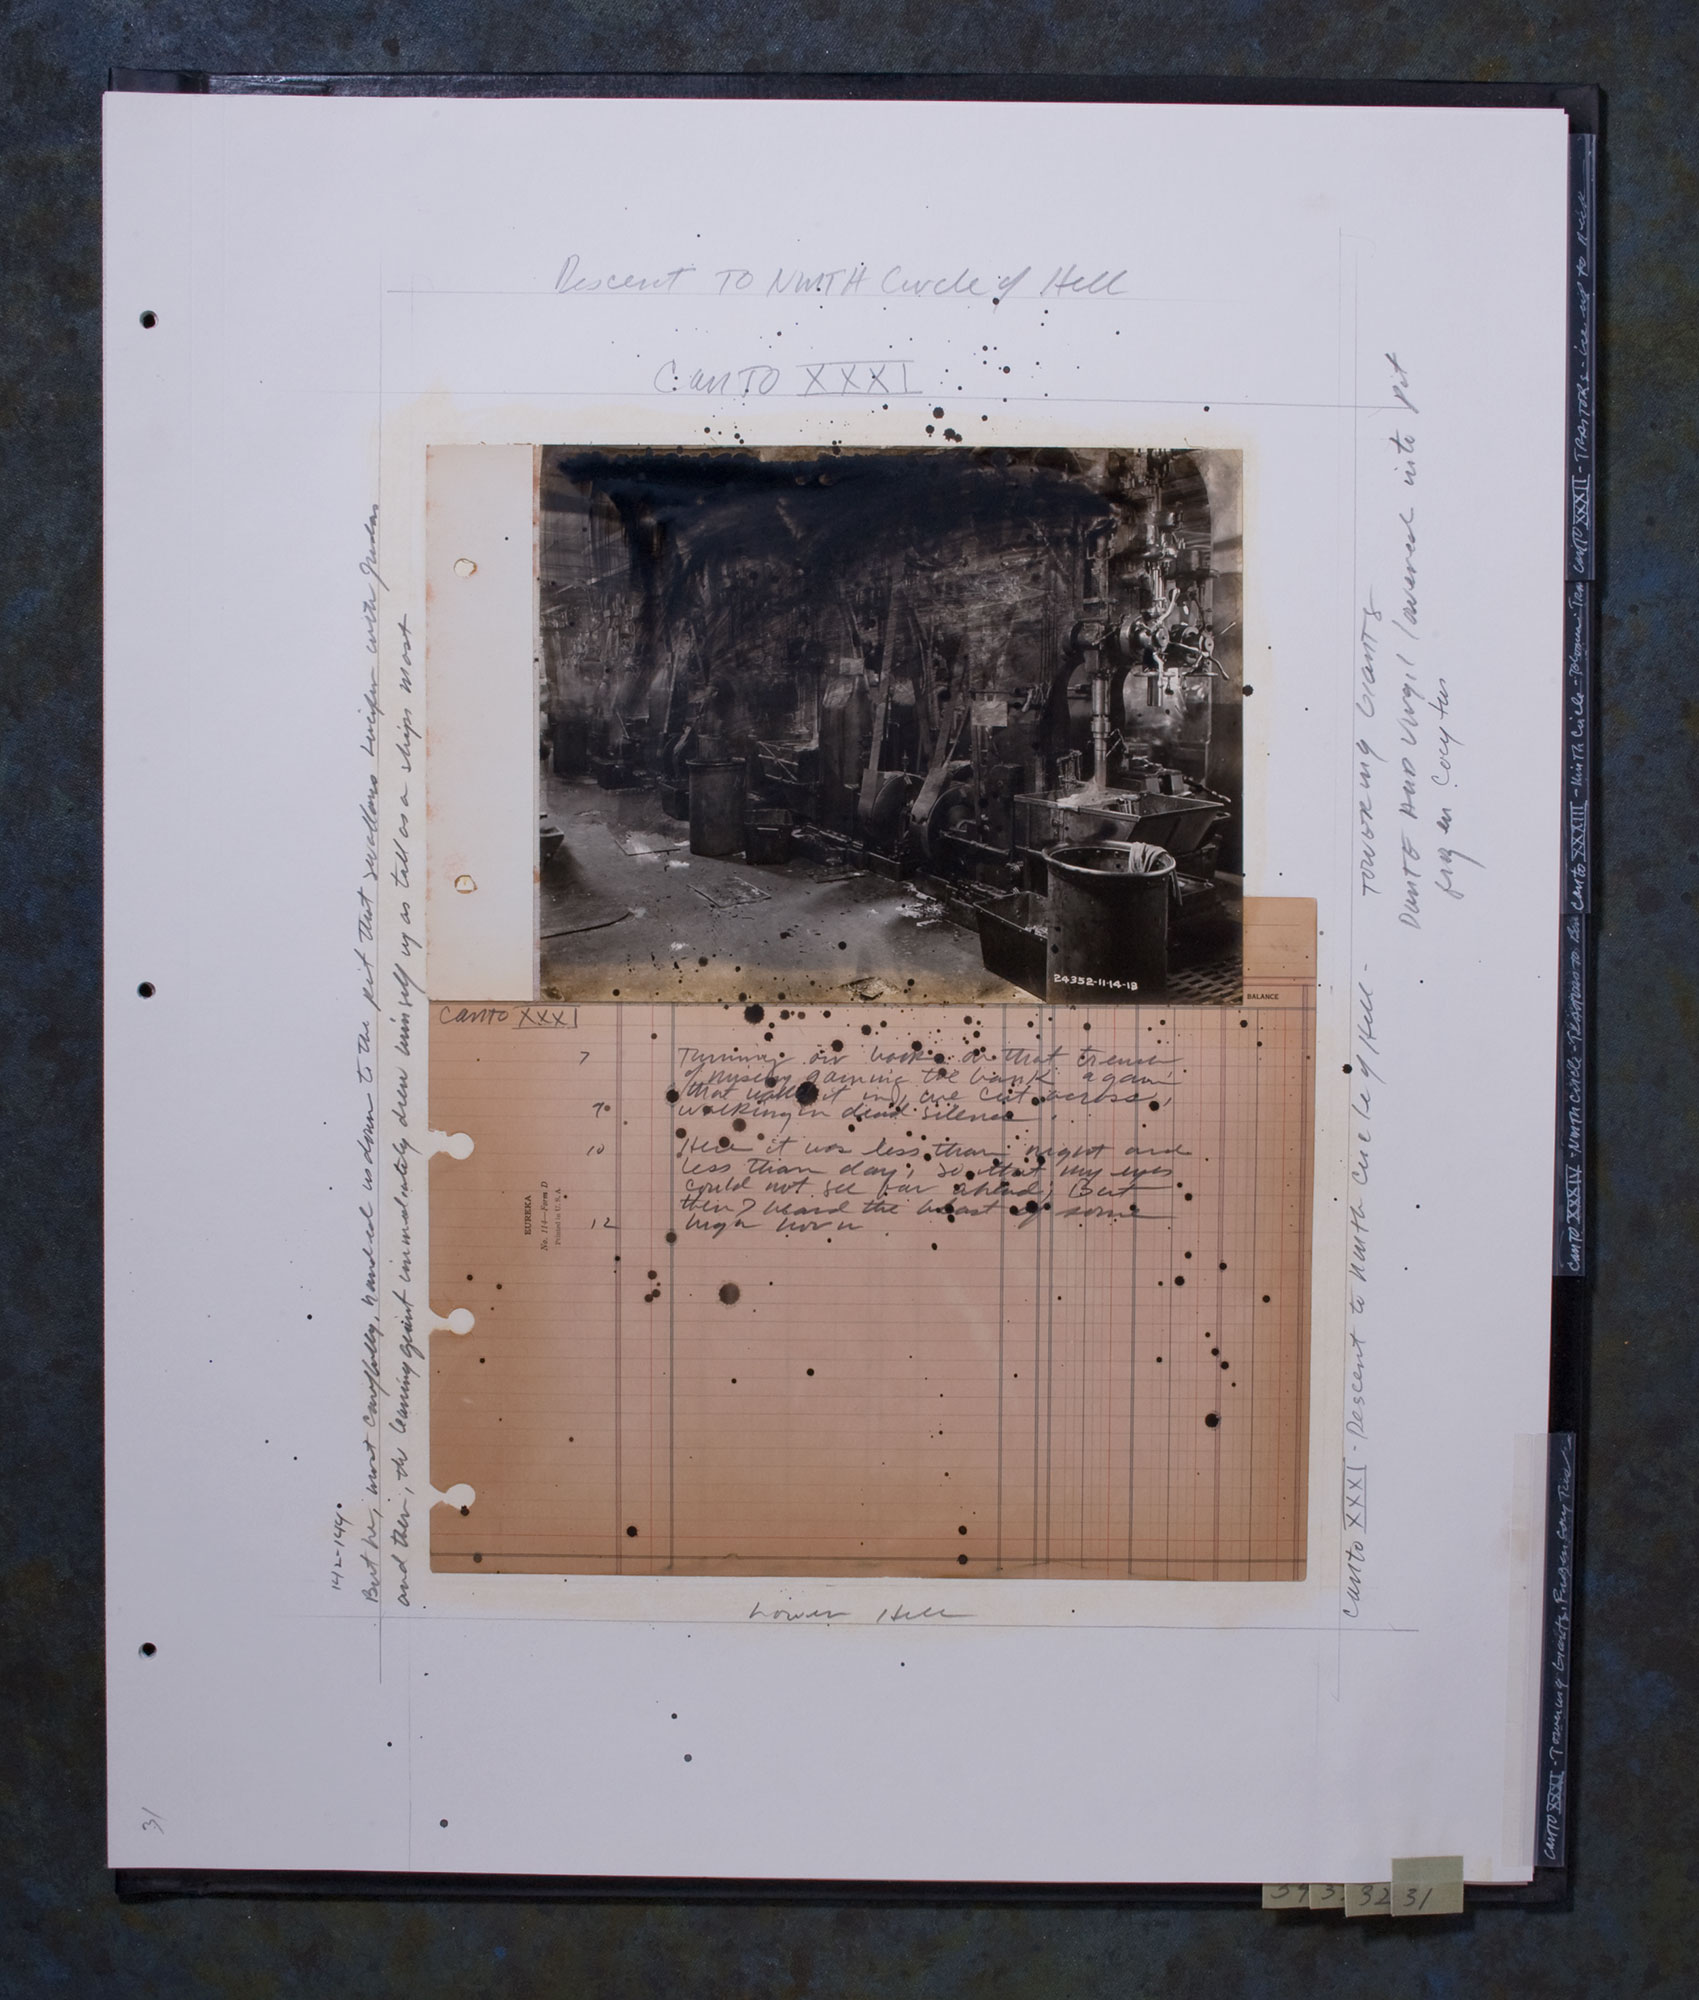 Descent TO NINTH Circle of Hell
CANTO XXXI
24352-11-14-18
BALANCE
Canto XXXI
7 Turning our backs on that trench
of misery gaining the bank again
that walls it in, we cut across,
9 walking in dead silence.
10 Here it was less than night and
less than day, so that my eyes
could not see far ahead; But
then I heard the blast of some
12 high horn
EUREKA
No. 114—Form D
Printed in U.S.A.
Lower Hell
142-144.
But he, most carefully, handed us down to the pit that swallows Lucifer with Judas
and then, the leaning giant immediately drew himself up as tall as a ships mast
Canto XXXI - Descent to ninth circle of Hell - TOWERING GIANTS
Dante AND Virgil lowered into pit
frozen Cocytus
31
CANTO XXXII - TRAITORS - ice
Canto XXXIII - Ninth Circle - Tolomea: Tra
CANTO XXXIV - Ninth Circle
CANTO XXXI - Towering Giants, Frozen Cocytus
34 3 32 31